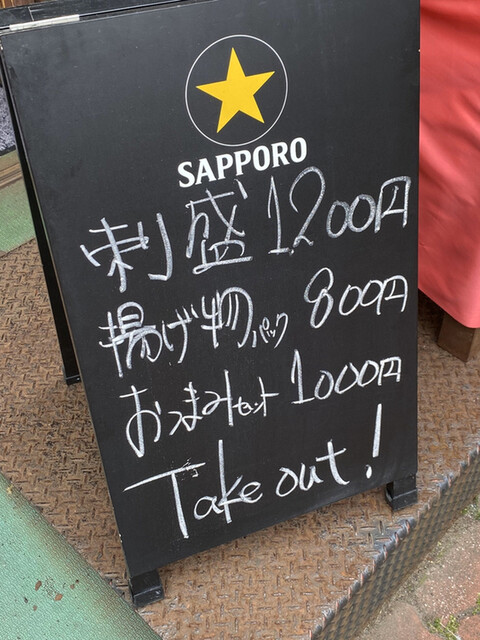 SAPPORO
刺盛 1200円
揚げ物パック 800円
おつまみセット 1000円
Take out!